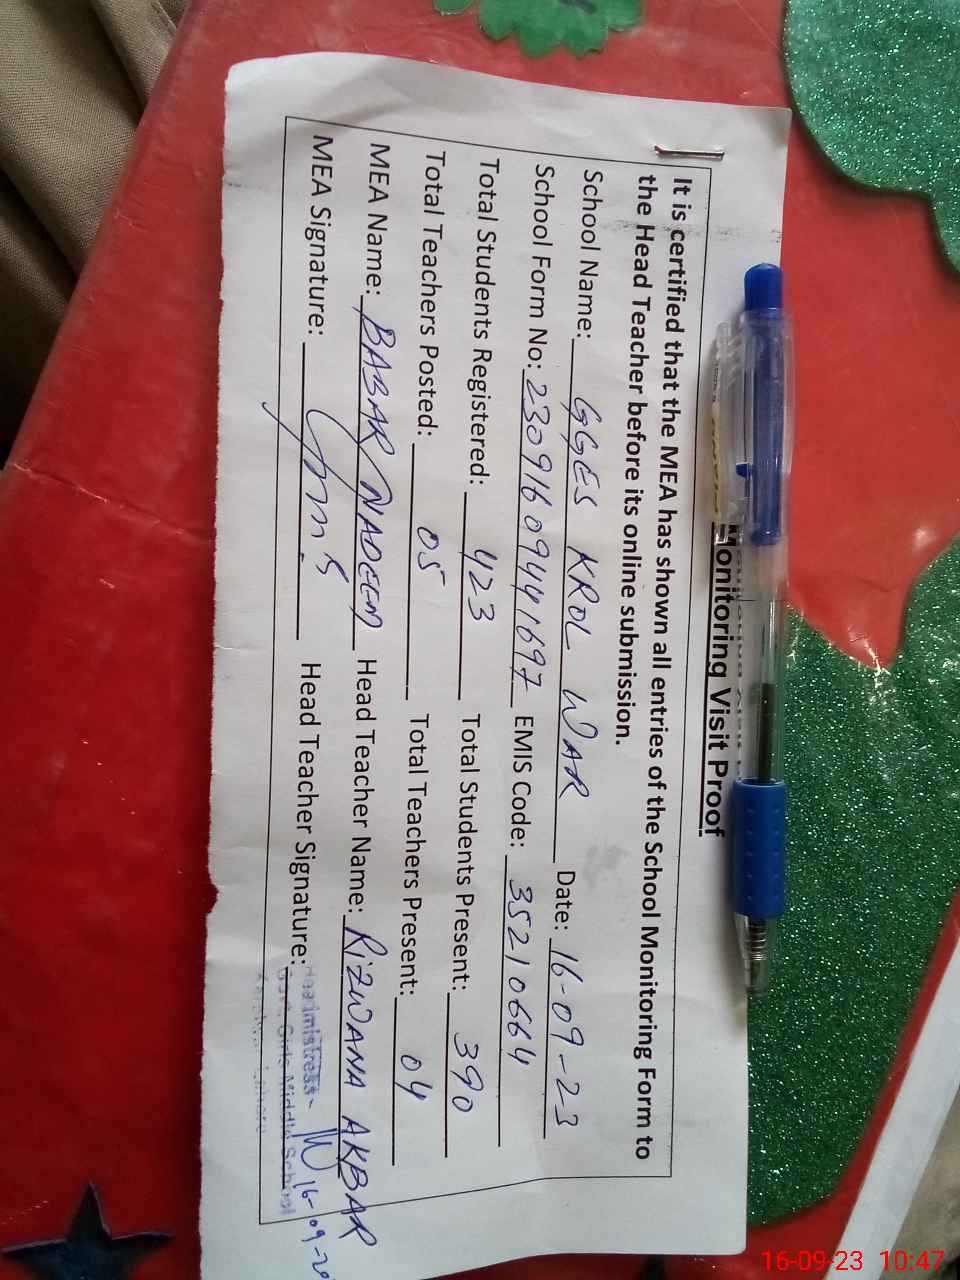 Monitoring Visit Proof
It is certified that the MEA has shown all entries of the School Monitoring Form to
the Head Teacher before its online submission.
School Name: GGES KROL WAR Date: 16-09-23
School Form No: 230916094441697 EMIS Code: 35210664
Total Students Registered: 423 Total Students Present: 390
Total Teachers Posted: 05 Total Teachers Present: 04
MEA Name: BABAR NADEEM Head Teacher Name: RIZWANA AKBAR
MEA Signature: Head Teacher Signature:
Headmistress
Govt. Girls Middle School
16-09-20
16-09-23 10:47